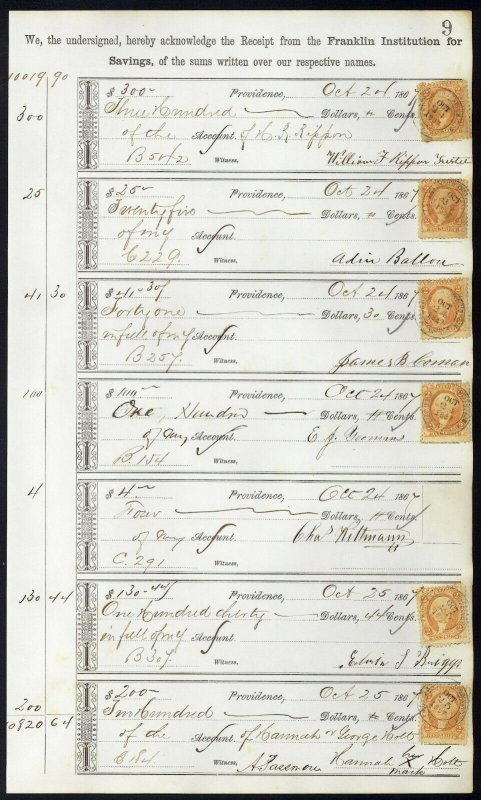 9
We, the undersigned, hereby acknowledge the Receipt from the Franklin Institution for
Savings, of the sums written over our respective names.
10019 90
300
$ 300- Providence, Oct 24 1867
Three Hundred Dollars, Cents,
of the Account. of H R Rippon
B 502 Witness, William F Rippon Trustee
25
$ 25- Providence, Oct 24 1867
Twenty five Dollars, Cents.
of my Account.
C 229. Witness, Adin Ballou
41 30
$ 41-30/ Providence, Oct 24 1867
Forty one Dollars, 30 Cents.
in full of my Account.
B 257. Witness, James B Coman
100
$ 100- Providence, Oct 24 1867
One Hundred Dollars, Cents.
of my Account. E. J. Yeomans
B. 154 Witness,
4
$ 4- Providence, Oct 24 1867
Four Dollars, Cents.
of my Account. Chas Wittmann
C. 291 Witness,
130 44
$ 130-44/ Providence, Oct 25 1867
One Hundred thirty Dollars, 44 Cents.
in full of my Account.
B 307. Witness, Edwin S Briggs
200
10820 64
$ 200- Providence, Oct 25 1867
Two Hundred Dollars, Cents.
of the Account. of Hannah or George Holt
Witness, Hannah her X mark Holt